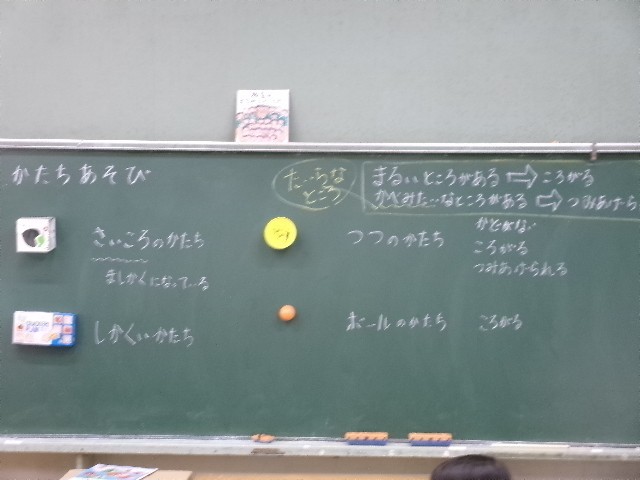 かたちあそび
たいらな
ところ
まるいところがある ⇨ ころがる
かべみたいなところがある ⇨ つみあげられ
さいころのかたち
ましかくになっている
つつのかたち
かどがない
ころがる
つみあげられる
しかくいかたち
ボールのかたち
ころがる